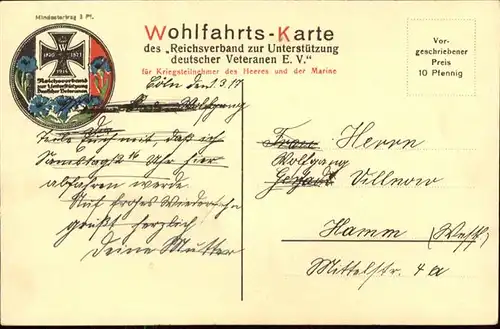 Mindestertrag 5 Pf.
Wohlfahrts-Karte
des „Reichsverband zur Unterstützung
deutscher Veteranen E. V."
für Kriegsteilnehmer des Heeres und der Marine
Vor-
geschriebener
Preis
10 Pfennig
W
1870 1871
1914
Reichsverband
zur Unterstützung
deutscher Veteranen
Cöln den 1.3.17.
Wolfgang
Teile Euch mit, daß ich
Samstags Uhr hier
abfahren werde.
Auf frohes Wiedersehn
grüßt herzlich
Deine Mutter
Frau Herrn
Wolfgang
Villnow
Hamm (Westf.)
Mittelstr. 4a